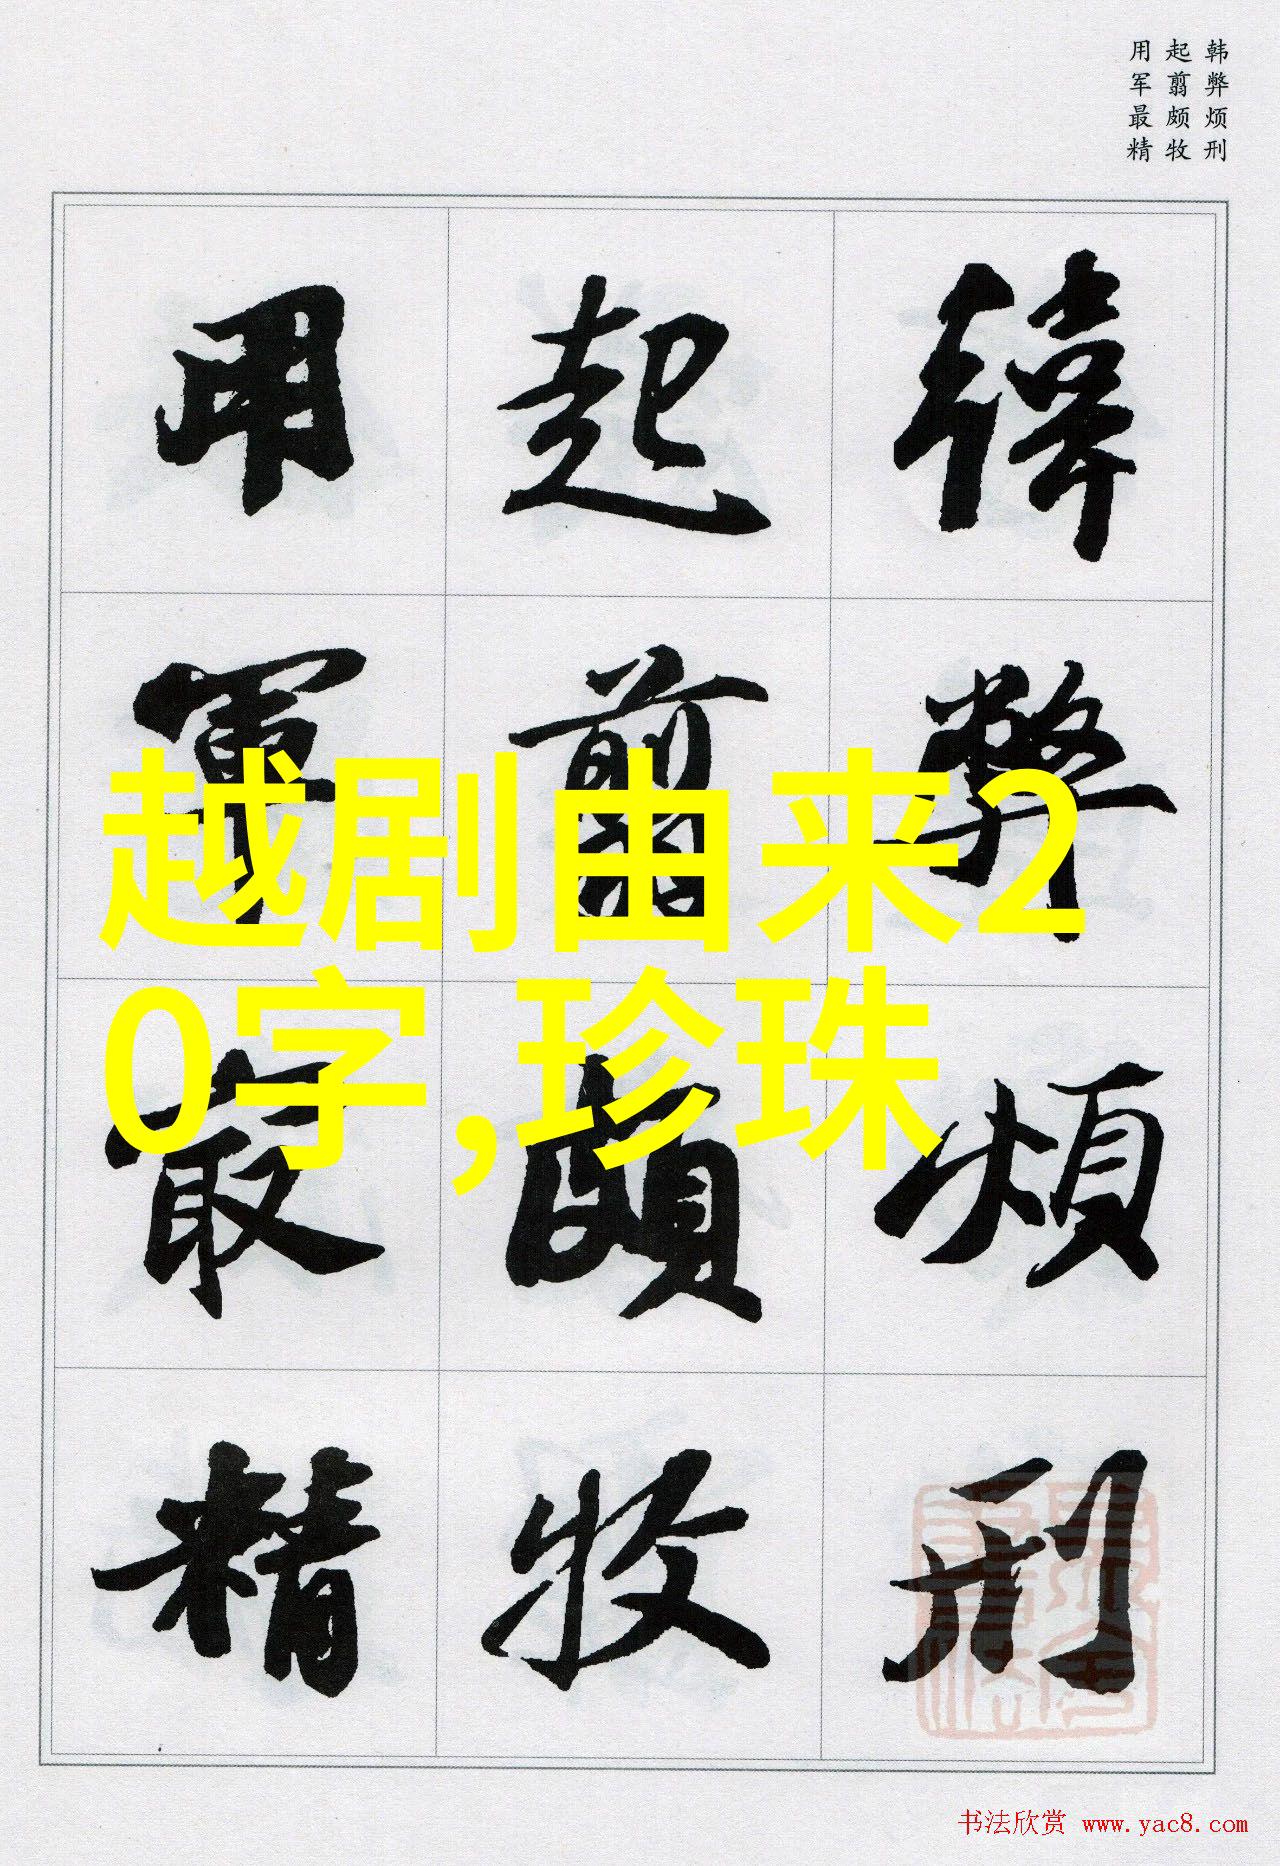 韩弊烦刑
起翦颇牧
用军最精
韓弊煩刑
起翦頗牧
用軍最精
越剧由来2
0字,珍珠
书法欣赏 www.yac8.com